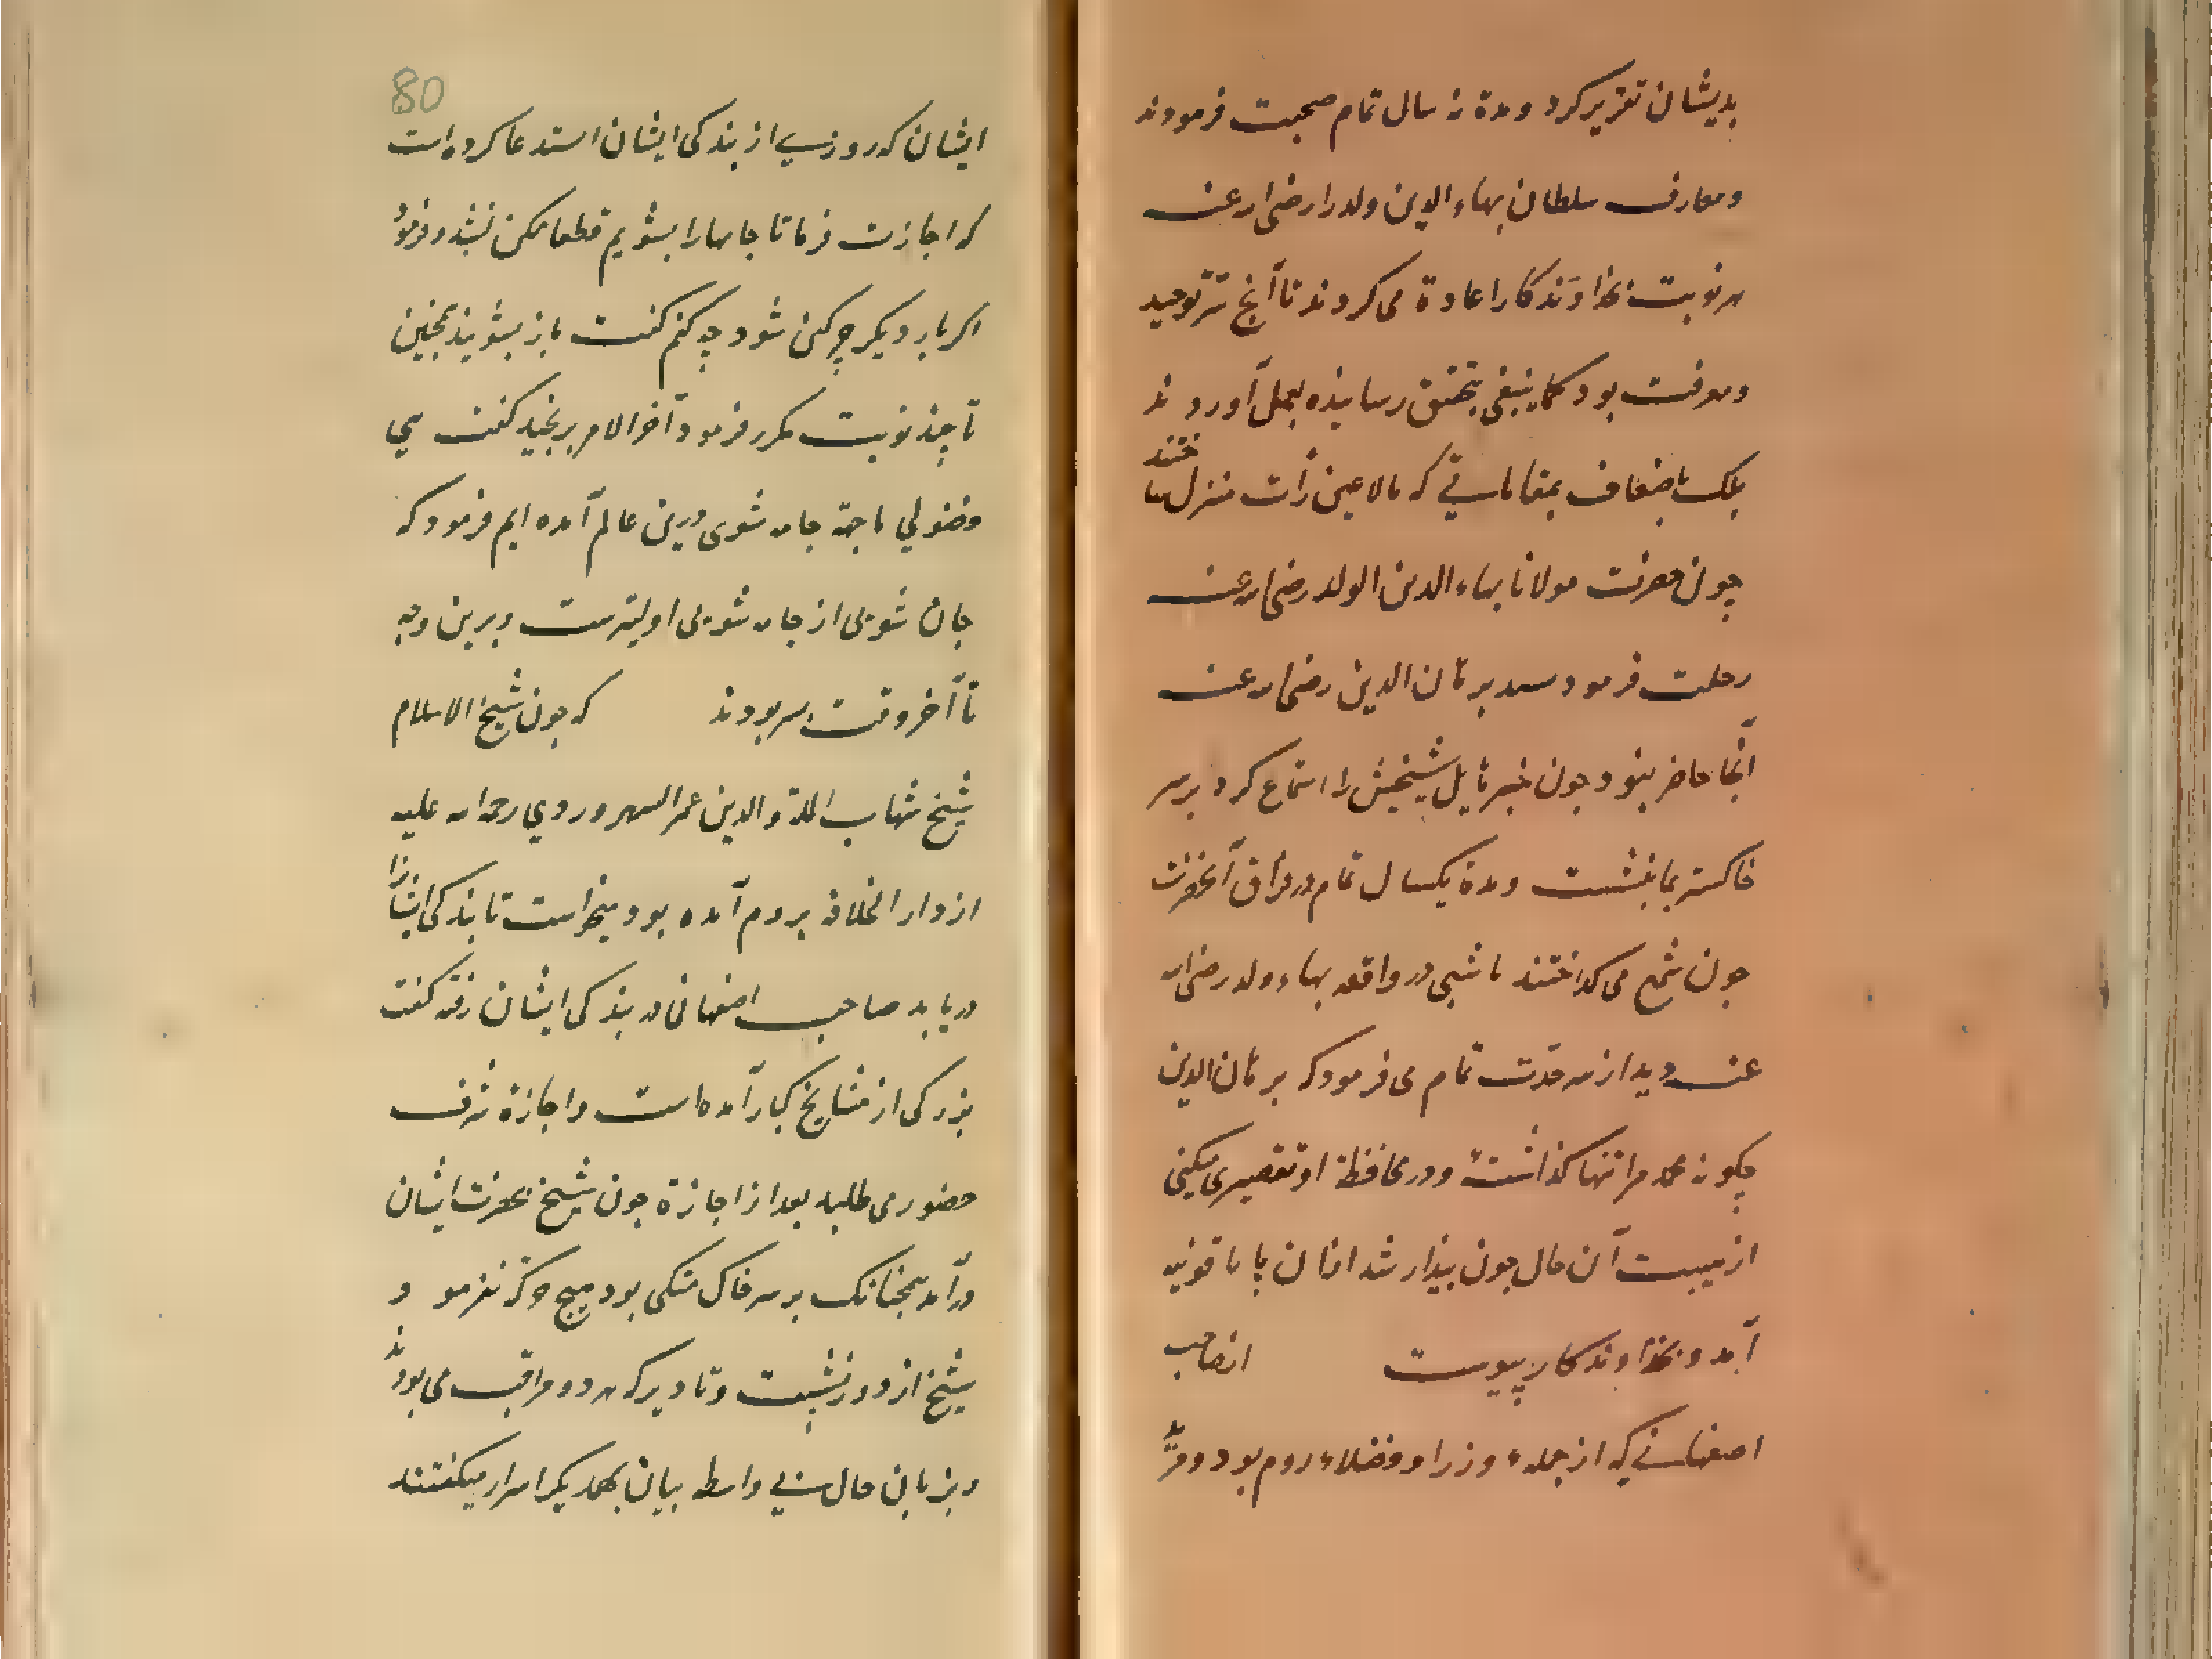 بدیشان تقریر کرد و مدة نه سال تمام صحبت فرمودند
ومعارف سلطان بهاء الدین ولد را رضی الله عنه
هر نوبت بخداوندکار اعادة می کردند تا آنچ سر توحید
ومعرفت بود کما ینبغی بتحقیق رسانیده بعمل آوردند
بلک باضعاف بمقاماتی که مالا عین رأت منزل ساختند
چون حضرت مولانا بهاء الدین الولد رضی الله عنه
رحلت فرمود سید برهان الدین رضی الله عنه
آنجا حاضر نبود چون خبر هایل شیخش را استماع کرد بر سر
خاکستر بماتم نشست ومدة یکسال تمام در فراق آنحضرت
چون شمع می کداختند تا شبی در واقعه بهاء ولد رضی الله
عنه دید از سر حدّت تمام می فرمود که برهان الدین
چکونه محمد مرا تنها کذاشتهٔ ودر محافظة او تقصیری میکنی
از هیبت آن حال چون بیدار شد تا قونیه
آمد و بخداوندکار پیوست انصاحب
اصفهانی که از جملهٔ وزرا و فضلاء روم بود و مرید
80
ایشان که روزی از بندکی ایشان استدعا کرده است
که اجازت فرما تا جامها را بشویم قطعا ممکن نشد و فرمود
اکر بار دیکر چرکن شود چه کنم کفت باز بشویند همچنین
تا چند نوبت مکرر فرمود آخر الامر برنجید کفت هی
فضولی ما جهة جامه شوی درین عالم آمده ایم فرمود که
جان شویی از جامه شویی اولیترست وبرین وجه
تا آخر وقت بسر بودند که چون شیخ الاسلام
شیخ شهاب الملة والدین عمر السهروردی رحمة الله علیه
از دار الخلافه بروم آمده بود میخواست تا بندکی ایشانرا
دریابد صاحب اصفهانی در بندکی ایشان رفته کفت
بزرکی از مشایخ کبار آمده است واجازة شرف
حضور می طلبد بعد از اجازة چون شیخ بحضرت ایشان
درآمد همچنانک بر سر خاک متکی بود هیچ حرکة نفرمود
شیخ از دور نشست وتا دیر که هر دو مراقب می بودند
وبزبان حال بی واسطه بیان بهمدیکر اسرار میکفتند